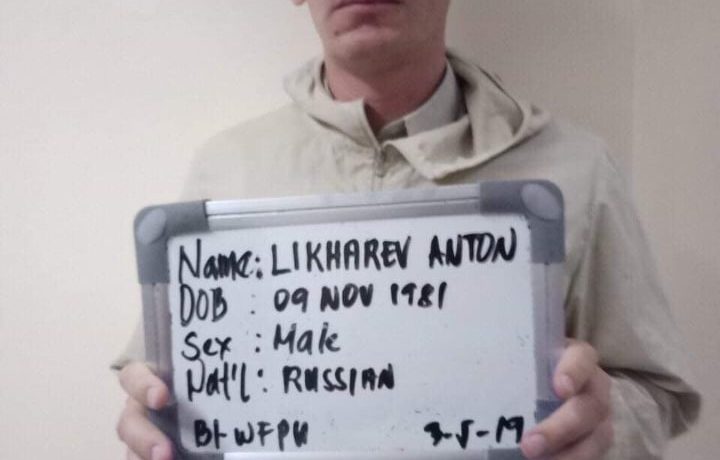 Name: LIKHAREV ANTON
DOB : 09 NOV 1981
Sex : Male
Nat'l : RUSSIAN
BI-WFPU 3-5-19